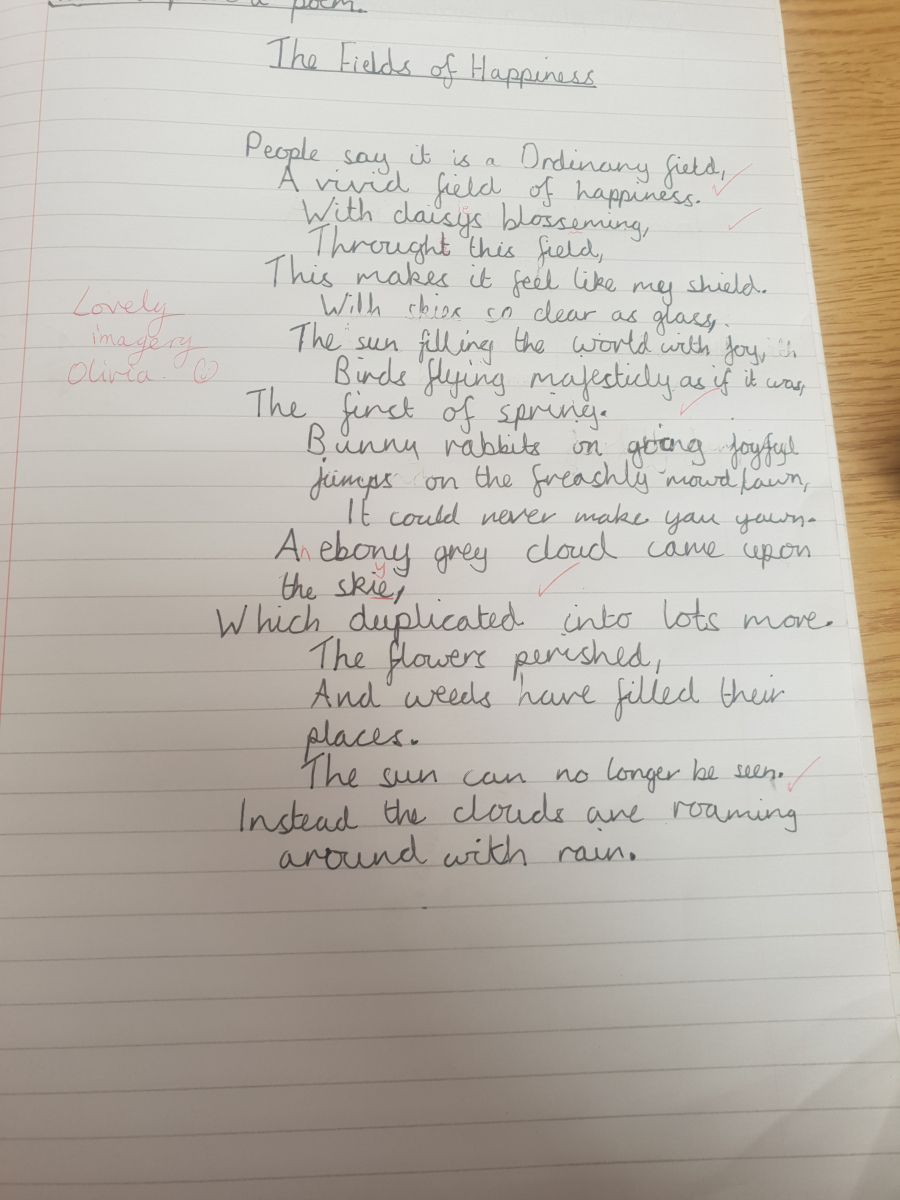 a poem.
The Fields of Happiness
People say it is a Ordinary field,
A vivid field of happiness.
With daisys blosseming,
Throught this field,
This makes it feel like my shield.
With skies so clear as glass,
The sun filling the world with joy,
Birds flying majesticly as if it was,
The first of spring.
Bunny rabbits on going joyful
jumps on the freashly mowd lawn,
It could never make you yawn.
An ebony grey cloud came upon
the skie, y
Which duplicated into lots more.
The flowers perished,
And weeds have filled their
places.
The sun can no longer be seen.
Instead the clouds are roaming
around with rain.
Lovely
imagery
Olivia.